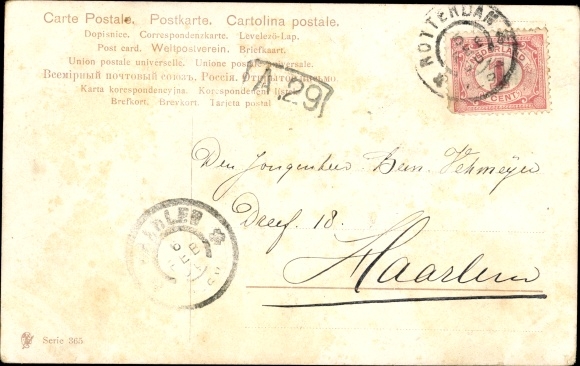 Carte Postale. Postkarte. Cartolina postale.
Dopisnice. Correspondenzkarte. Levelező-Lap.
Post card. Weltpostverein. Briefkaart.
Union postale universelle. Unione postale universale.
Всемірный почтовый союзъ, Россія. Открытое письмо
Karta korespondencyjna. Korespondenční lístek.
Brefkort. Brevkort. Tarjeta postal
A.29
ROTTERDAM
NEDERLAND
1
CENT
Den Jongenheer Bern. Vehmeyer
Dreef. 18.
Haarlem
Serie 365